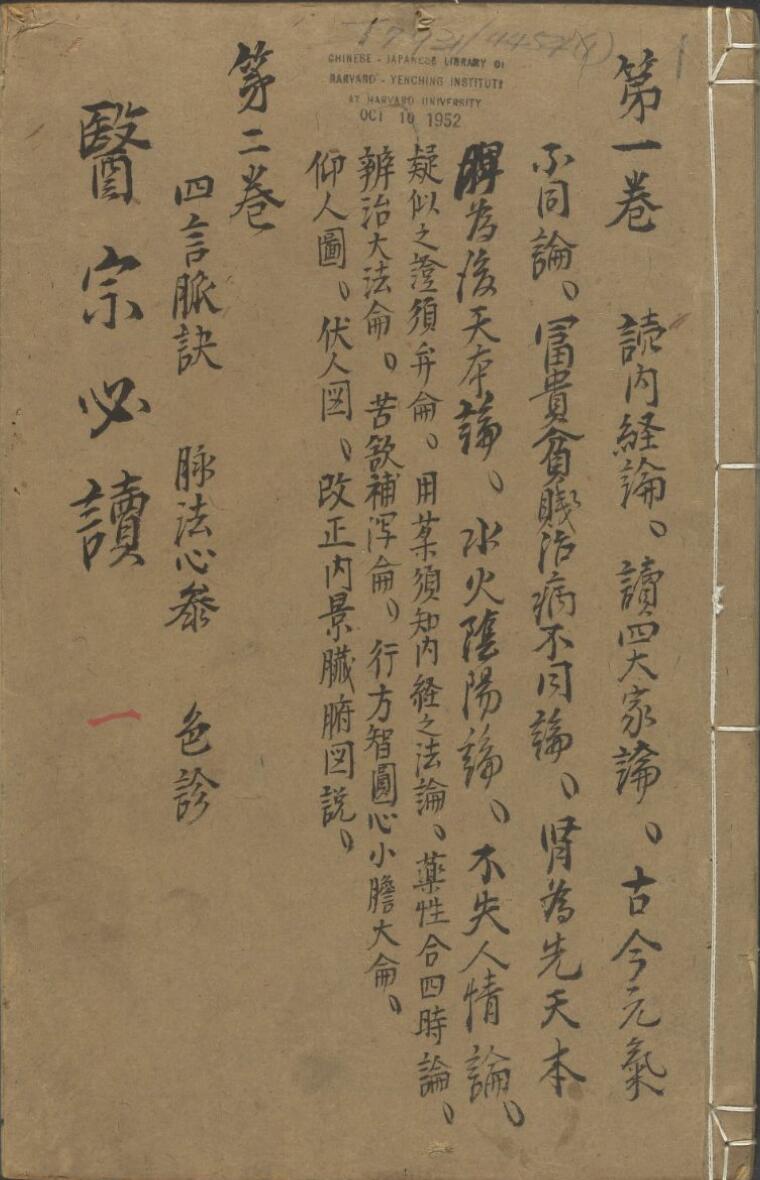 第一卷 読内経論。讀四大家論。古今元氣
不同論。冨貴貧賤治病不同論。肾為先天本
脾為後天本論。水火陰陽論。不失人情論。
疑似之證須弁侖。用薬須知内経之法論。薬性合四時論。
辨治大法侖。苦欲補泻侖。行方智圓心小膽大侖。
仰人圖。伏人図。改正内景臓腑図説。
第二巻
四言脈訣 脉法心参 色診
醫宗必讀 一
CHINESE - JAPANESE LIBRARY OF
HARVARD - YENCHING INSTITUTE
AT HARVARD UNIVERSITY
OCT 10 1952